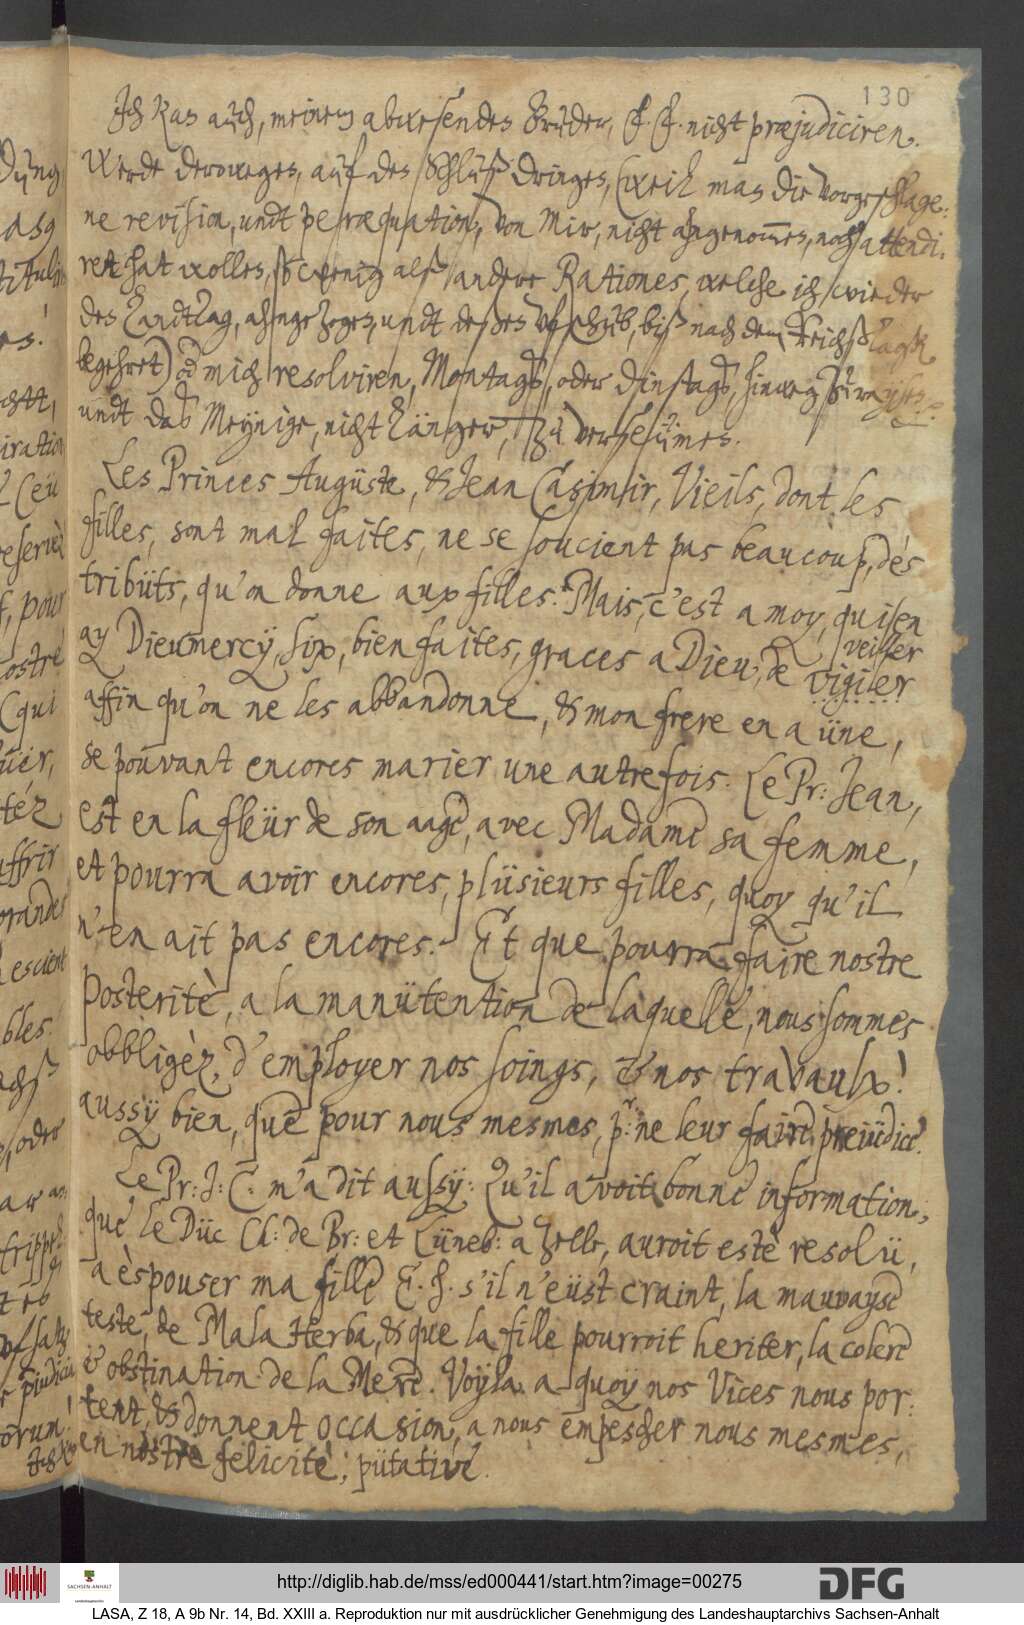 130
Ich kan auch, meinem abwesenden Bruder, F. F. nicht præjudiciren.
Werde derowegen, auf den Schluß dringen, (weil man die vorgeschlage-
ne revision, undt peræquation, von Mir, nicht angenommen, noch attendi-
ret hat wollen, so wenig alß andere Rationes, welche ich wieder
den Landtag, angezogen, undt deßen Ufschub, biß nach dem Reichßtage
begehret) & mich resolviren, Montags, oder Dinstags, hinweg zu
undt das Meynige, nicht länger, zu verseümen.
Les Princes Augüste, & Jean Casimir, Vieils, dont les
filles, sont mal faites, ne se soucient pas beaucoup, dès
tribüts, qu'on donne aux filles. Mais, c'est a moy, qui en
ay Dieumercÿ, six, bien faites, graces a Dieu, de vigiler
veiller
affin qu'on ne les abbandonne, & mon frere en a üne,
se pouvant encores marier une autrefois. Le Pr: Jean,
est en la fleür de son aagè, avec Madame sa femme,
et pourra avoir encores, plüsieurs filles, quoy qu'il
n'en ait pas encores. Et que pourra faire nostre
Posteritè, a la manütention de laquelle, nous sommes
obbligèz, d'employer nos soings, & nos travaulx!
aussÿ bien, que pour nous mesmes, pr: ne leur faire, prejüdice.
Le Pr: J: C: m'a dit aussÿ: Qu'il avoit bonne information,
que le Düc Ch: de Br: et Lüneb: a Zelle, auroit estè resolü,
a èspouser ma fille E. J. s'il n'eüst craint, la mauvayse
teste, de Mala Herba, & que la fille pourroit heriter, la colere
& obstination de la Mere. Voyla a quoÿ nos Vices nous por-
tent, & donnent occasion, a nous empescher nous mesmes,
en nòstre felicitè, pütative.
http://diglib.hab.de/mss/ed000441/start.htm?image=00275
DFG
SACHSEN-ANHALT
LASA, Z 18, A 9b Nr. 14, Bd. XXIII a. Reproduktion nur mit ausdrücklicher Genehmigung des Landeshauptarchivs Sachsen-Anhalt